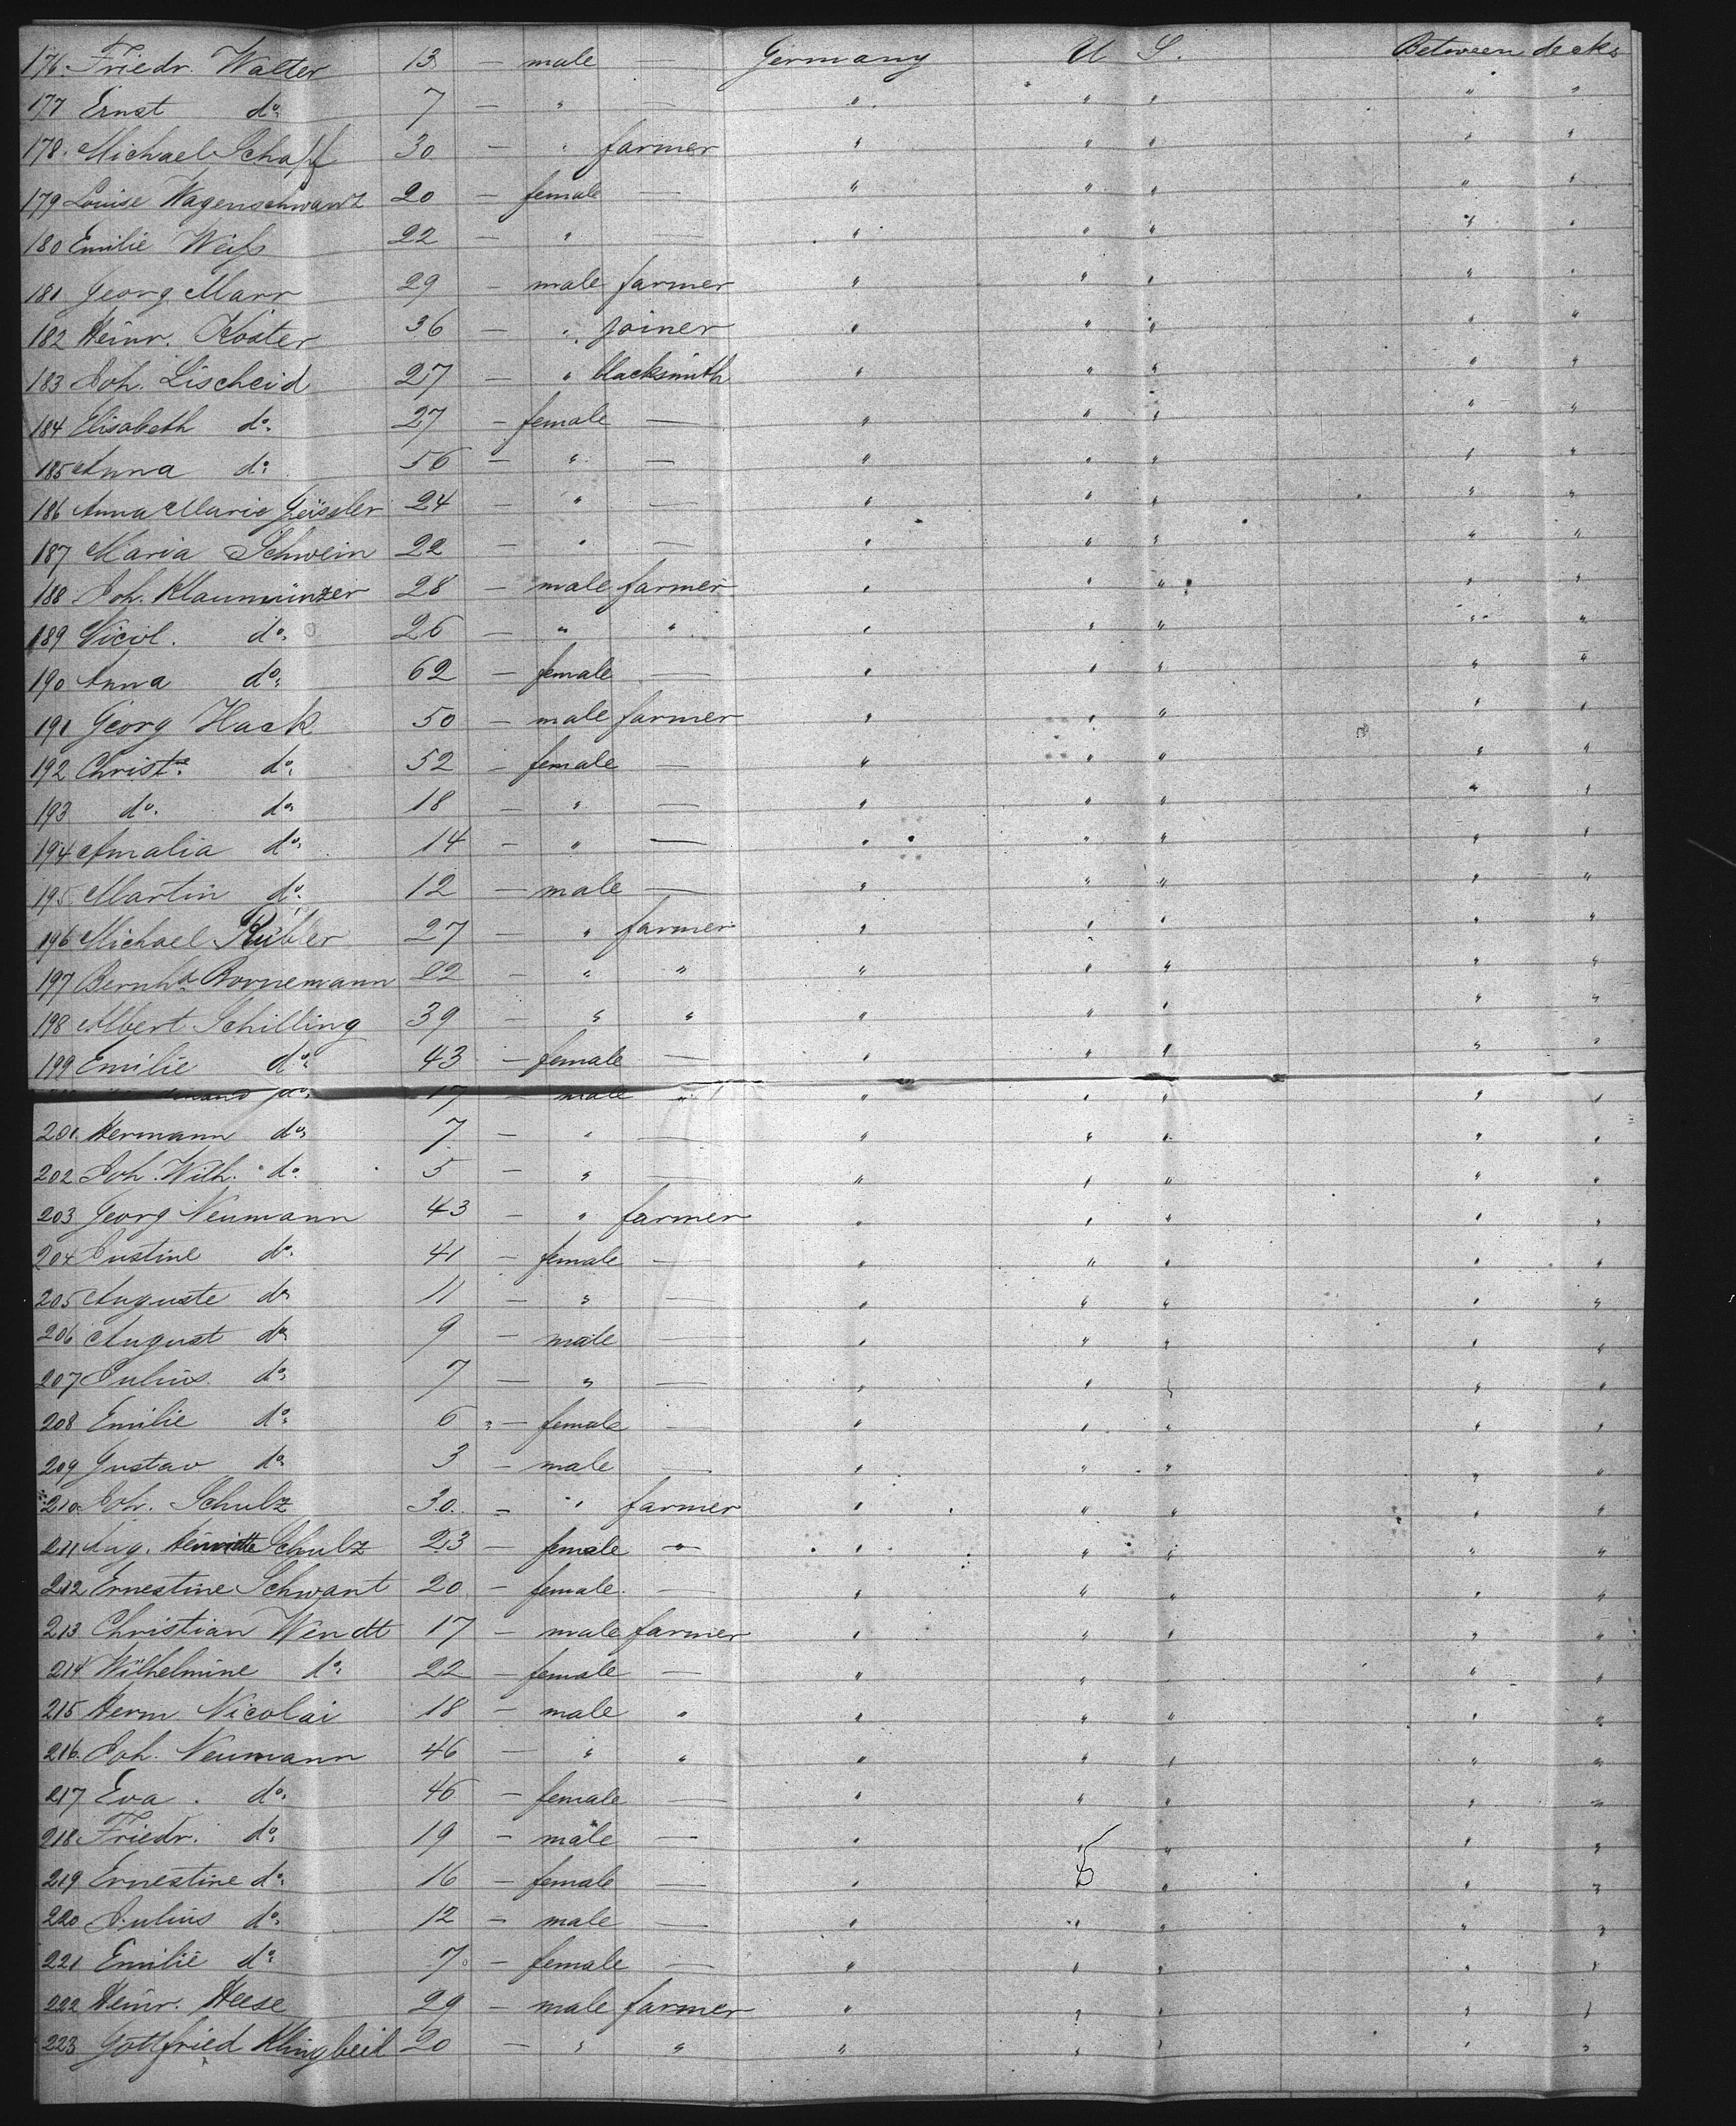 176. Friedr. Walter 13 — male — Germany U S. Between decks
177 Ernst do: 7 — " — " " " " "
178. Michael Schapf 30 — " farmer " " " " "
179 Louise Wagenschwanz 20 — female — " " " " "
180 Emilie Weiss 22 — " — " " " " "
181 Georg Marr 29 — male farmer " " " " "
182 Heinr. Koster 36 — " joiner " " " " "
183 Joh. Lischeid 27 — " blacksmith " " " " "
184 Elisabeth do: 27 — female — " " " " "
185 Anna do: 56 — " — " " " " "
186 Anna Marie Geissler 24 — " — " " " " "
187 Maria Schwein 22 — " — " " " " "
188 Joh. Klaumünzer 28 — male farmer " " " " "
189 Nicol. do: 26 — " " " " " " "
190 Anna do: 62 — female — " " " " "
191 Georg Hack 50 — male farmer " " " " "
192 Christe: do: 52 — female — " " " " "
193 do. do: 18 — " — " " " " "
194 Amalia do: 14 — " — " " " " "
195 Martin do: 12 — male — " " " " "
196 Michael Kübler 27 — " farmer " " " " "
197 Bernhd. Bornemann 22 — " " " " " " "
198 Albert Schilling 39 — " " " " " " "
199 Emilie do: 43 — female — " " " " "
do: 17 — male " " " " " "
201. Hermann do: 7 — " — " " " " "
202 Joh. Wilh. do. 5 — " — " " " " "
203 Georg Neumann 43 — " farmer " " " " "
204 Justine do: 41 — female — " " " " "
205 Auguste do: 11 — " — " " " " "
206 August do: 9 — male — " " " " "
207 Julius do: 7 — " — " " " " "
208 Emilie do: 6 — female — " " " " "
209 Gustav do: 3 — male — " " " " "
210. Joh. Schulz 30. — " farmer " " " " "
211 Aug. Henriette Schulz 23 — female — " " " " "
212 Ernestine Schwant 20 — female. — " " " " "
213 Christian Wendt 17 — male farmer " " " " "
214 Wilhelmine do: 22 — female — " " " " "
215 Herm Nicolai 18 — male " " " " " "
216. Joh. Neumann 46 — " " " " " " "
217 Eva do: 46 — female — " " " " "
218 Friedr. do: 19 — male — " " " " "
219 Ernestine do: 16 — female — " " " " "
220 Julius do: 12 — male — " " " " "
221 Emilie do: 7 — female — " " " " "
222 Heinr. Heese 29 — male farmer " " " " "
223 Gottfried Klingbeil 20 — " " " " " " "